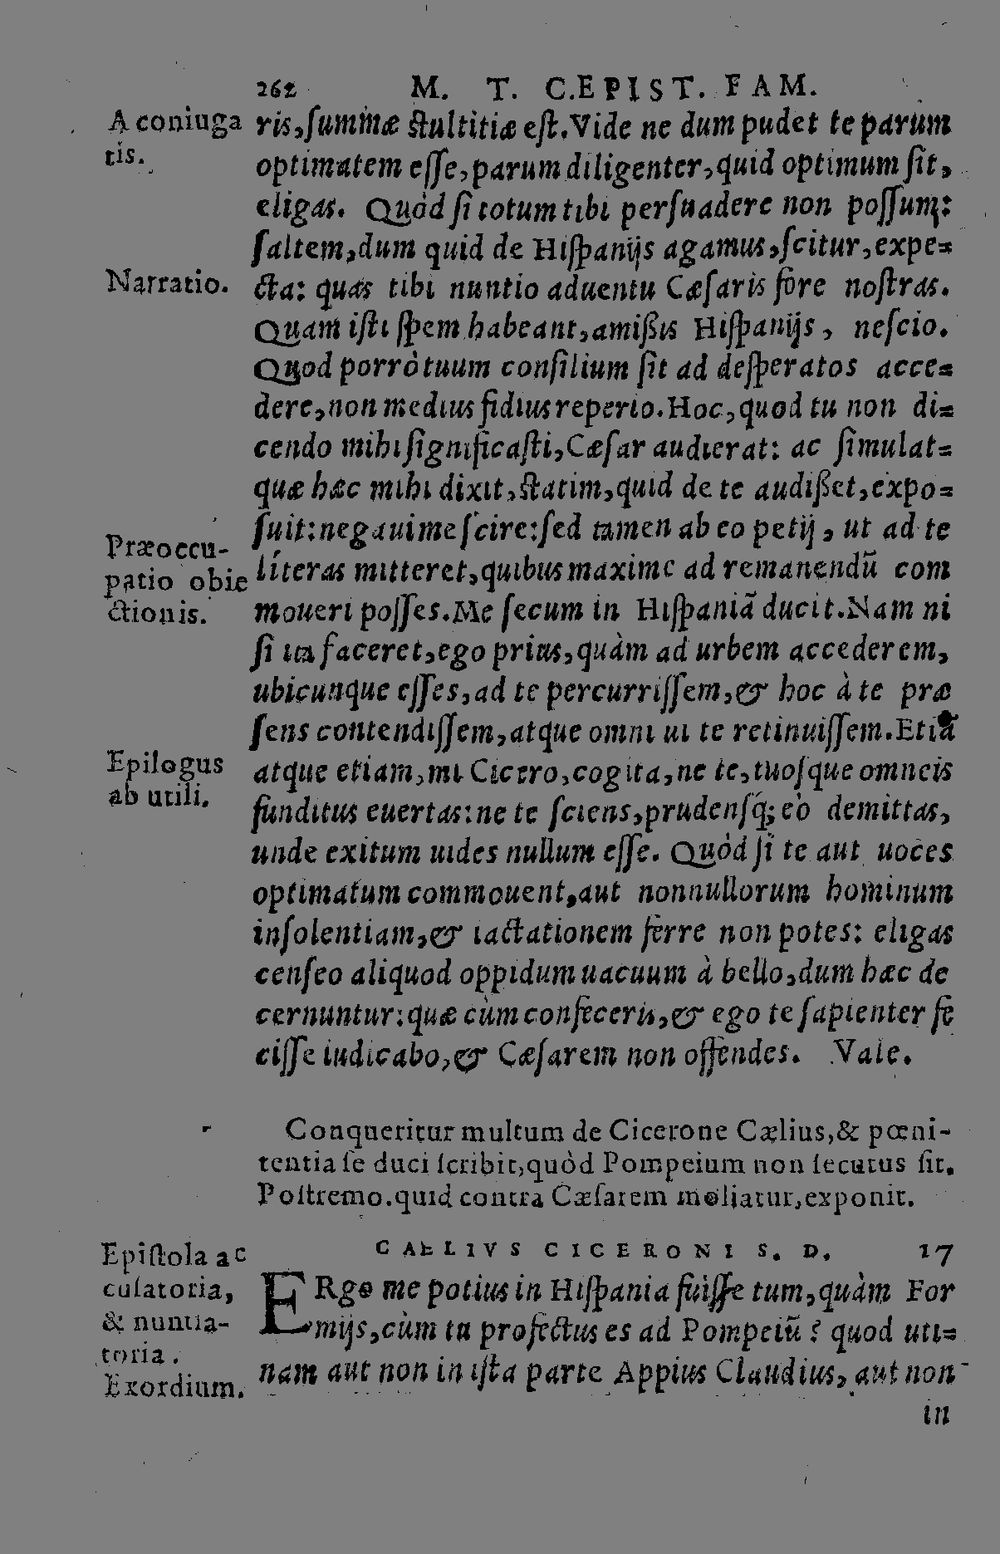 262 M. T. C. EPIST. FAM.
A coniuga
tis.
ris, summæ stultitiæ est. Vide ne dum pudet te parum
optimatem esse, parum diligenter, quid optimum sit,
eligas. Quòd si totum tibi persuadere non possum:
saltem, dum quid de Hispanijs agamus, scitur, expe=
Narratio.
cta: quas tibi nuntio aduentu Cæsaris fore nostras.
Quam isti spem habeant, amißis Hispanijs, nescio.
Quod porrò tuum consilium sit ad desperatos acce=
dere, non medius fidius reperio. Hoc, quod tu non di=
cendo mihi significasti, Cæsar audierat: ac simulat=
quæ hæc mihi dixit, statim, quid de te audißet, expo=
suit: negaui me scire: sed tamen ab eo petij, ut ad te
Præoccu-
patio obie
ctionis.
literas mitteret, quibus maxime ad remanendũ com
moueri posses. Me secum in Hispaniã ducit. Nam ni
si ita faceret, ego prius, quàm ad urbem accederem,
ubicunque esses, ad te percurrissem, & hoc à te præ
sens contendissem, atque omni ui te retinuissem. Etiã
Epilogus
ab utili.
atque etiam, mi Cicero, cogita, ne te, tuosque omneis
funditus euertas: ne te sciens, prudensq́; eò demittas,
unde exitum uides nullum esse. Quòd si te aut uoces
optimatum commouent, aut nonnullorum hominum
insolentiam, & iactationem ferre non potes: eligas
censeo aliquod oppidum uacuum à bello, dum hæc de
cernuntur: quæ cùm feceris, & ego te sapienter fe
cisse iudicabo, & Cæsarem non offendes. Vale.
Conqueritur multum de Cicerone Cælius, & pœni-
tentia se duci scribit, quòd Pompeium non secutus sit.
Postremo. quid contra Cæsarem moliatur, exponit.
CAELIVS CICERONI S. D. 17
Epistola ac
cusatoria,
& nuntia-
toria.
Exordium.
ERgo me potius in Hispania fuisse tum, quàm For
mijs, cùm tu profectus es ad Pompeiũ? quod uti=
nam aut non in ista parte Appius Claudius, aut non
in